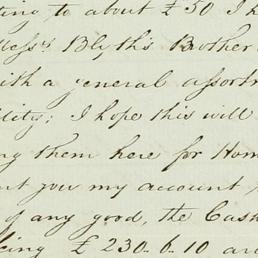 ting to about £50 I h
Mess.rs Blyth's Brother
with a general assort
lity; I hope this will
ng them here for Hom
nt you my account
of any good, the Cash
£230.6.10 an